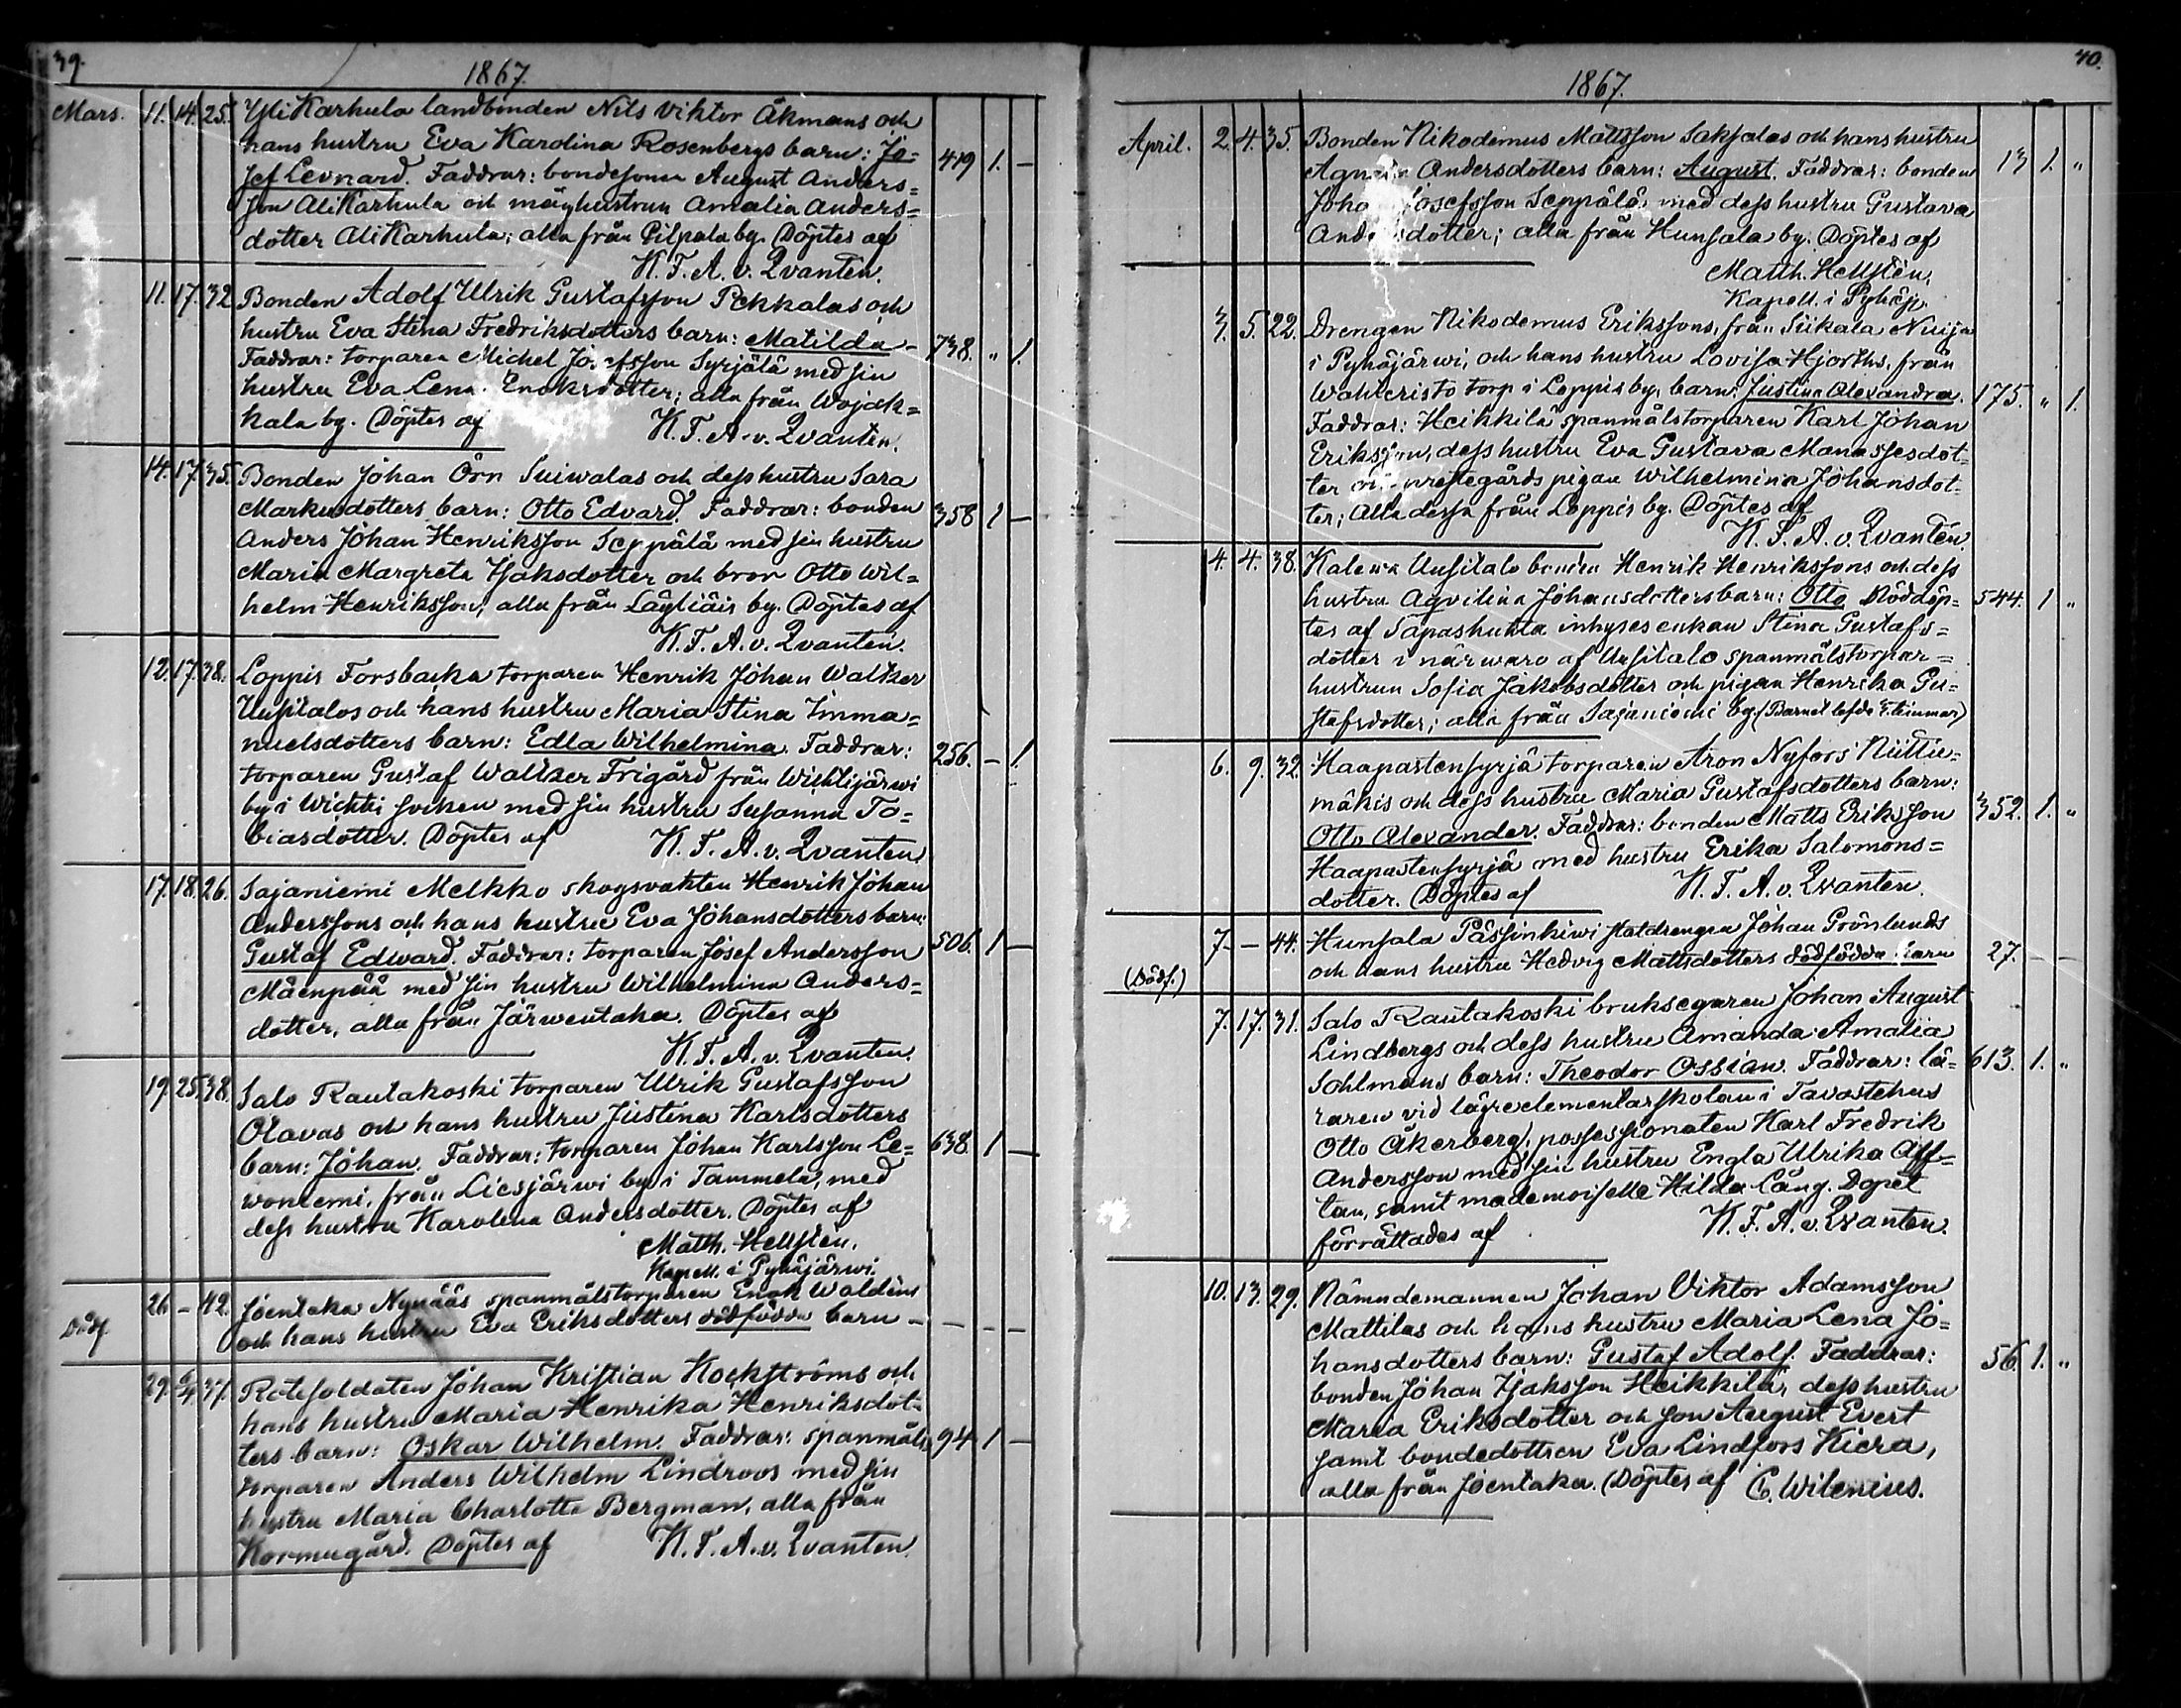 39.
1867.
Mars. 11. 14. 25. YliKarhula landbonden Nils Viktor Åkmans och
hans hustru Eva Karolina Rosenbergs barn: Jo=
sef Leonard. Faddrar: bondesonen August Anders= 419 1. —
son AliKarhula och måghustrun Amalia Anders=
dotter AliKarhula; alla från Pilpala by. Döptes af
K. F. A. v. Qvanten.
11. 17. 32 Bonden Adolf Ulrik Gustafsson Pekkalas och
hustru Eva Stina Fredriksdotters barn: Matilda – 738. " 1.
Faddrar: torparen Michel Josefsson Syrjälä med sin
hustru Eva Lena Enoksdotter; alla från Wojak=
kala by. Döptes af K. F. A. v. Qvanten.
14. 17. 35. Bonden Johan Örn Suiwalas och dess hustru Sara
Markusdotters barn: Otto Edvard. Faddrar: bonden 358 1 —
Anders Johan Henriksson Seppälä med sin hustru
Maria Margreta Isaksdotter och bror Otto Wil=
helm Henriksson, alla från Läyliäis by. Döptes af
K. F. A. v. Qvanten.
12. 17. 38. Loppis Forsbacka torparen Henrik Johan Waltzer
Uusitalos och hans hustru Maria Stina Imma=
nuelsdotters barn: Edla Wilhelmina. Faddrar: 256. – 1.
torparen Gustaf Waltzer Frigård från Wichtijärwi
by i Wichtis socken med sin hustru Susanna To=
biasdotter. Döptes af K. F. A. v. Qvanten
17. 18. 26. Sajaniemi Melkko skogsvakten Henrik Johan
Anderssons och hans hustru Eva Johansdotters barn:
Gustaf Edward. Faddrar: torparen Josef Andersson 506. 1 —
Mäenpää med sin hustru Wilhelmina Anders=
dotter, alla från Järwentaka. Döptes af
K. F. A. v. Qvanten.
19. 25. 38. Salo Rautakoski torparen Ulrik Gustafsson
Olavas och hans hustru Justina Karlsdotters
barn: Johan. Faddrar: torparen Johan Karlsson Le= 638. 1 —
woniemi, från Liesjärwi by i Tammela, med
dess hustru Karolina Andersdotter. Döptes af
Matth. Hellstén.
Kapell. i Pyhäjärwi
Dödf. 26 – 42. Joentaka Nynääs spanmålstorparen Enok Waldéns
och hans hustru Eva Eriksdotters dödfödda barn – — – —
29. 6/4 37. Rotesoldaten Johan Kristian Kockströms och
hans hustru Maria Henrika Henriksdot=
ters barn: Oskar Wilhelm. Faddrar: spanmåls 94 1 —
torparen Anders Wilhelm Lindroos med sin
hustru Maria Charlotta Bergman, alla från
Kormugård. Döptes af K. F. A. v. Qvanten.
40.
1867.
April. 2. 4. 35. Bonden Nikodemus Mattsson Saksalas och hans hustru
Andersdotters barn: August. Faddrar: bonden 13 1. "
Johan Josefsson Seppälä med dess hustru Gustava
Andersdotter; alla från Hunsala by. Döptes af
Matth. Hellstén,
Kapell. i Pyhäj.
3. 5. 22. Drengen Nikodemus Erikssons, från Siikala Nuija
i Pyhäjärwi, och hans hustru Lovisa Hjorths, från
Wahteristo torp i Loppis by, barn: Justina Alexandra. 175. " 1.
Faddrar: Heikkilä spanmålstorparen Karl Johan
Eriksson, dess hustru Eva Gustava Manassesdot=
ter prestegårds pigan Wilhelmina Johansdot=
ter; Alla dessa från Loppis by. Döptes af
K. F. A. v. Qvanten.
4. 4. 38. Uusitalo bonden Henrik Henrikssons och dess
hustru Agvilina Johansdotters barn: Otto. Nöddöp= 544. 1 "
tes af Sapashuhta inhyses enkan Stina Gustafs=
dotter i närwaro af Uusitalo spanmålstorpar=
hustrun Sofia Jakobsdotter och pigan Henrika Gu=
stafsdotter; alla från Sajaniemi by. (Barnet lefde timmar)
6. 9. 32. Haapastensyrjä torparen Aron Nyfors Niittu=
mäkis och dess hustru Maria Gustafsdotters barn:
Otto Alexander. Faddrar: bonden Matts Eriksson 352. 1. "
Haapastensyrjä med hustru Erika Salomons=
dotter. Döptes af K. F. A. v. Qvanten.
7. – 44. Hunsala Pässinkiwi statdrengen Johan Grönlunds
(Dödf.) och hans hustru Hedvig Mattsdotters dödfödda barn 27. – –
7. 17. 31. Salo Rautakoski bruksegaren Johan August
Lindbergs och dess hustru Amanda Amalia
Sohlmans barn: Theodor Ossian. Faddrar: lä= 613. 1. "
raren vid lägreelementarskolan i Tavastehus
Otto Åkerberg, possessionaten Karl Fredrik
Andersson med sin hustru Engla Ulrika Aff=
tan, samt mademoiselle Hilda Lång. Dopet
förrättades af K. F. A. v. Qvanten.
10. 13. 29. Nämndemannen Johan Viktor Adamsson
Mattilas och hans hustru Maria Lena Jo=
hansdotters barn: Gustaf Adolf. Faddrar: 56. 1. "
bonden Johan Isaksson Heikkilä, dess hustru
Maria Eriksdotter och son August Evert
samt bondedottren Eva Lindfors Kiera,
alla från Joentaka. Döptes af C. Wilenius.